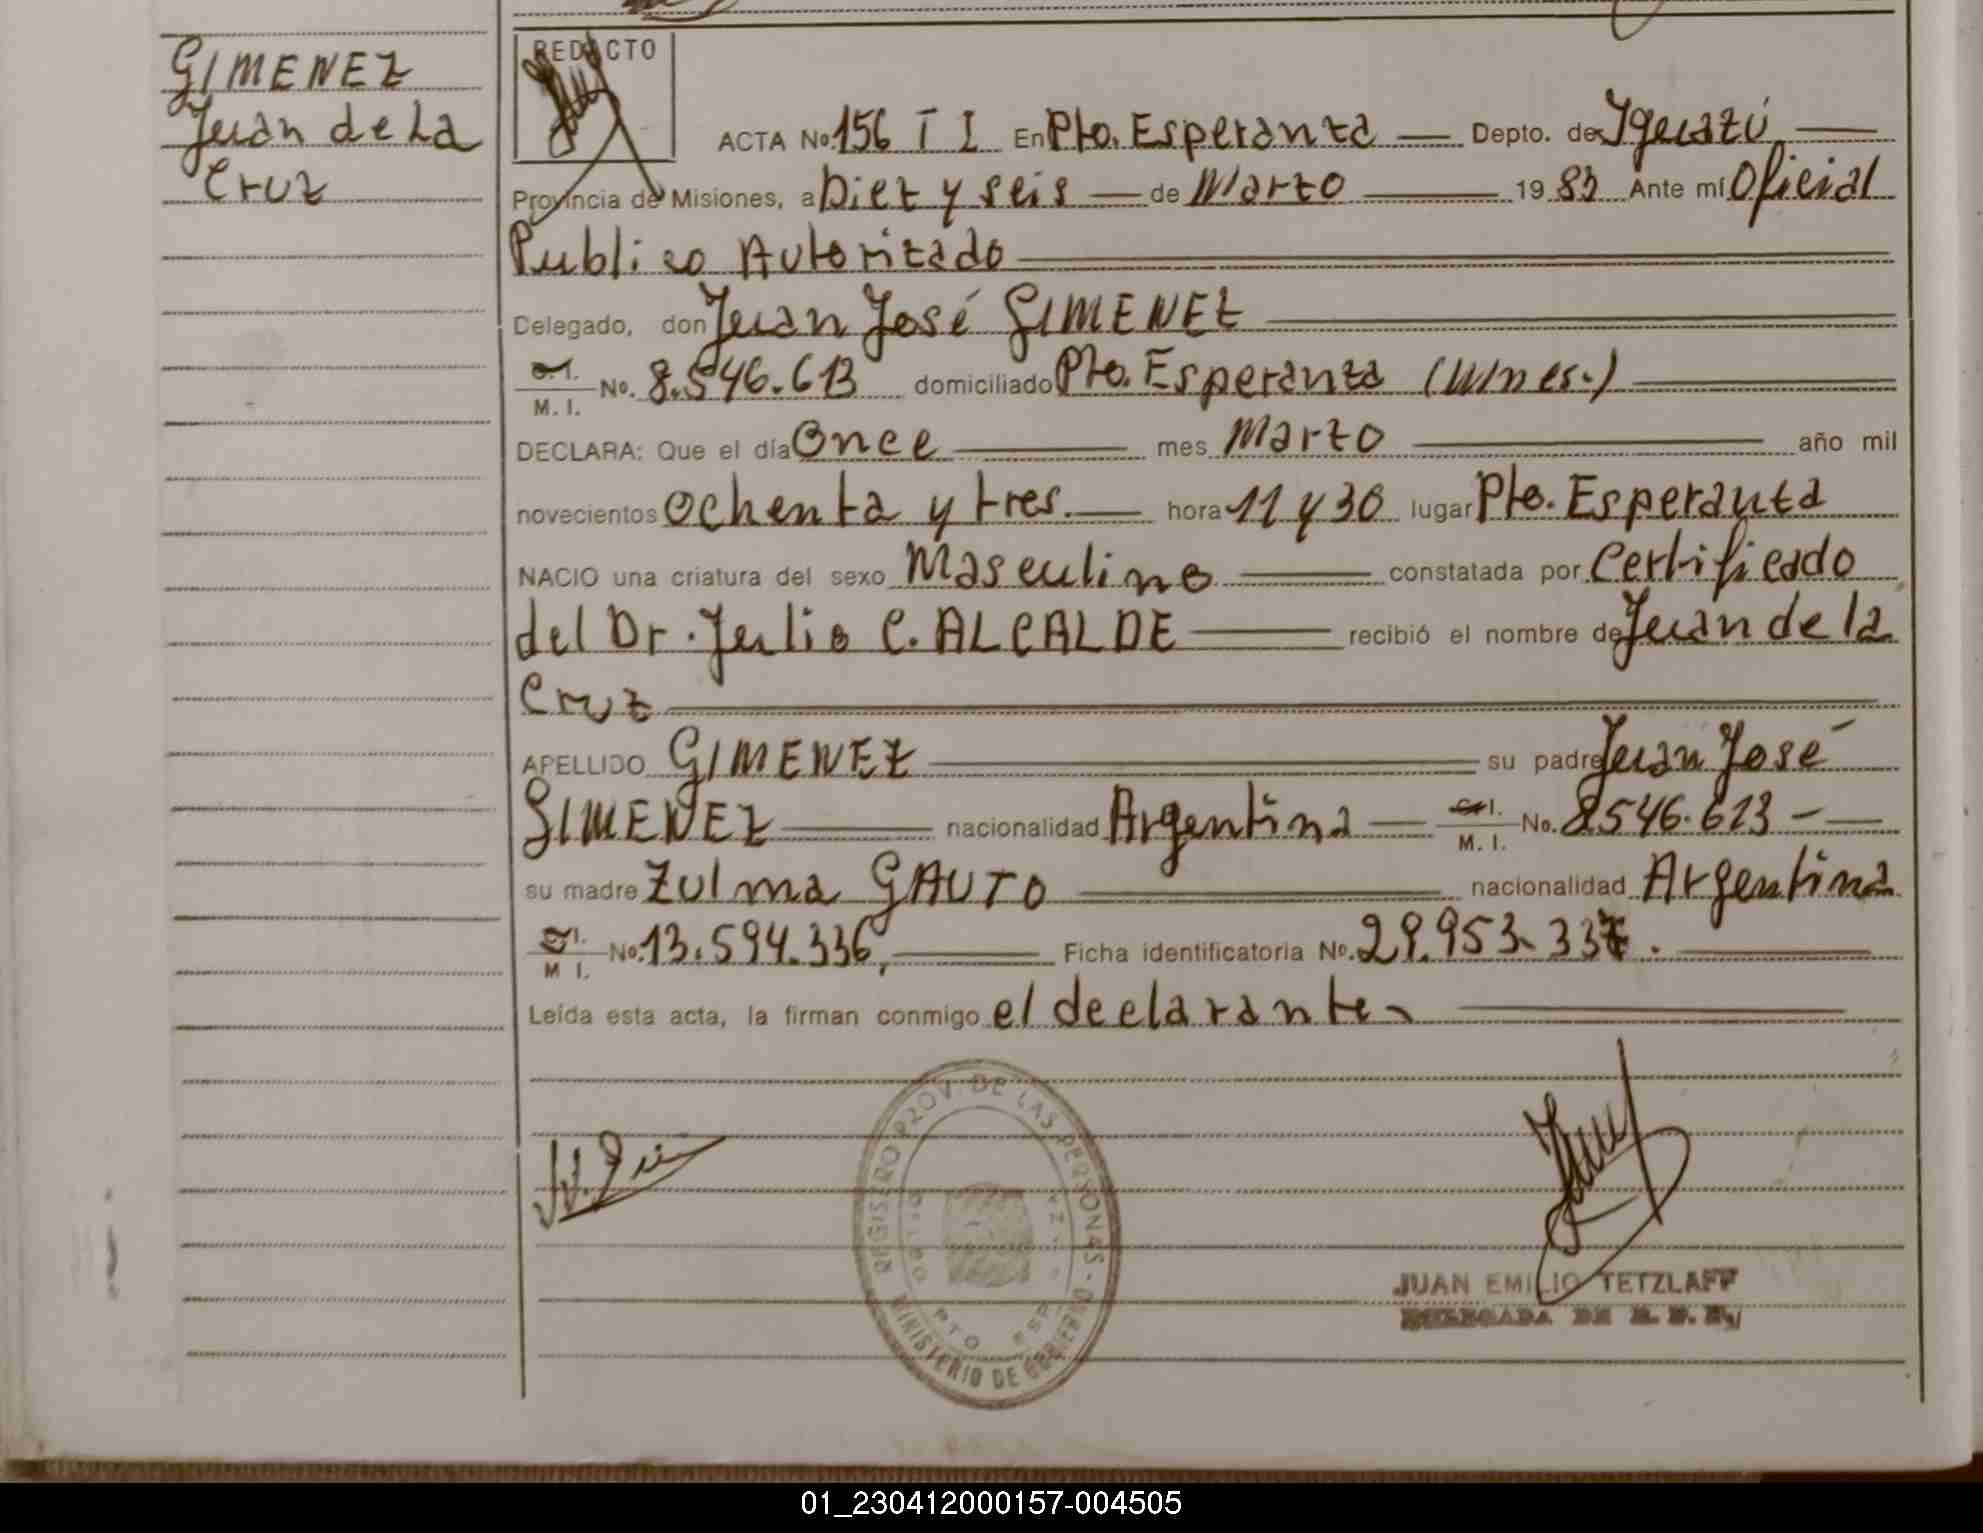 GIMENEZ
Juan de La
Cruz
REDACTO
ACTA No. 156 T I En Pto. Esperanza Depto. de Iguazú
Provincia de Misiones, a Diez y seis de Marzo 19 83 Ante mí Oficial
Publico Autorizado
Delegado, don Juan José GIMENEZ
C.I. M. I. No. 8.546.613 domiciliado Pto. Esperanza (Mnes.)
DECLARA: Que el día Once mes Marzo año mil
novecientos Ochenta y tres. hora 11 y 30 lugar Pto. Esperanza
NACIO una criatura del sexo Masculino constatada por Certificado
del Dr. Julio C. ALCALDE recibió el nombre de Juan de la
Cruz
APELLIDO GIMENEZ su padre Juan José
GIMENEZ nacionalidad Argentina C.I. M. I. No. 8.546.613
su madre Zulma GAUTO nacionalidad Argentina
C.I. M I. No. 13.594.336, Ficha identificatoria No. 29.953.337.
Leída esta acta, la firman conmigo el declarante
REGISTRO PROV. DE LAS PERSONAS - MINISTERIO DE GOBIERNO
PTO ESP
JUAN EMILIO TETZLAFF
DELEGADA DE R. P. P.
01_230412000157-004505